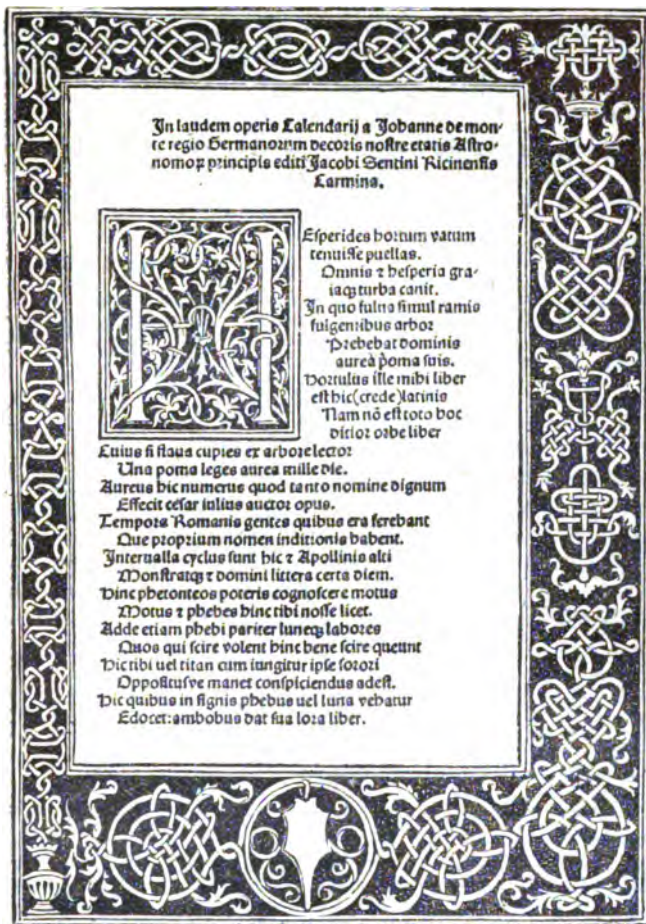 In laudem operis Calendarij a Johanne de mon-
te regio Germanorum decoris nostre etatis Astro-
nomoꝝ principis editi Jacobi Sentini Ricinensis
Carmina.
HEsperides hortum vatum
tenuisse puellas.
Omnis ⁊ hesperia gra-
iaqꝫ turba canit.
In quo fulua simul ramis
fulgentibus arbor
Prebebat dominis
aurea poma suis.
Hortulus iste mihi liber
est hic(crede)latinis
Nam nõ est toto hoc
ditior orbe liber
Cuius si flaua cupies ex arbore lector
Una poma leges aurea mille die.
Aureus hic numerus quod tanto nomine dignum
Effecit cesar iulius auctor opus.
Tempora Romanis gentes quibus era ferebant
Que proprium nomen inditionis habent.
Interualla cyclus sunt hic ⁊ Apollinis alti
Monstratqꝫ ⁊ domini littera certa diem.
Hinc phetonteos poteris cognoscere motus
Motus ⁊ phebes hinc tibi nosse licet.
Adde etiam phebi pariter luneqꝫ labores
Quos qui scire volent hinc bene scire queunt
Hic tibi uel titan cum iungitur ipse sorori
Oppositusve manet conspiciendus adest.
Hic quibus in signis phebus uel luna vehatur
Edocet: ambobus dat sua lora liber.